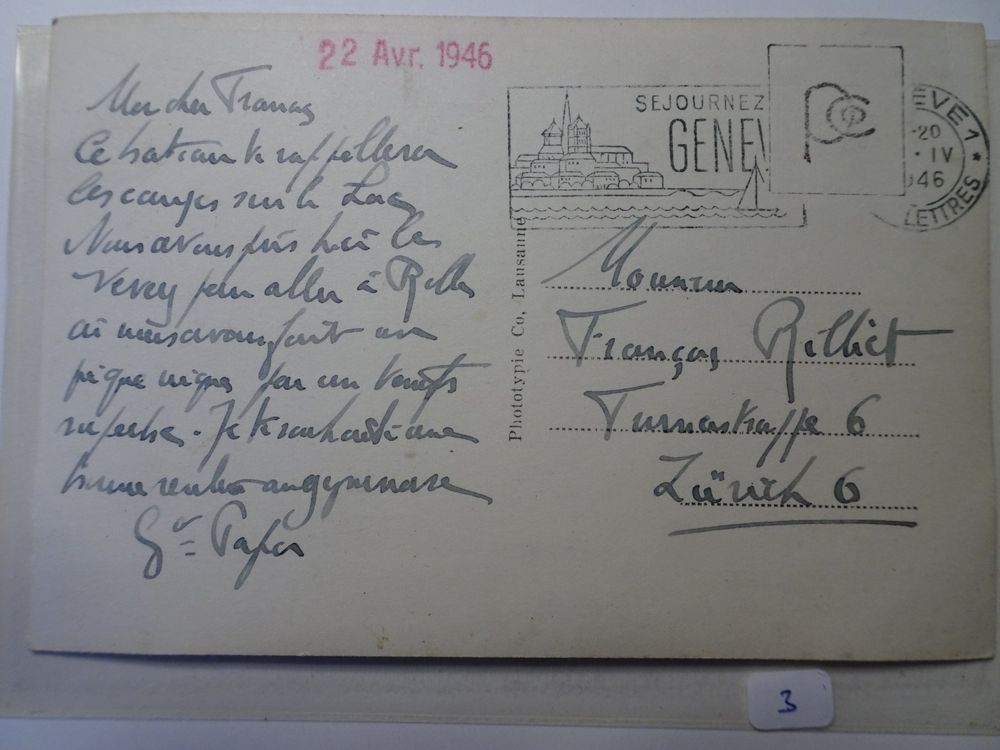 22 Avr. 1946
Mon cher François
Ce bateau te rappellera
les courses sur le Lac
Nous avons pris hier le
Vevey pour aller à Rolle
où nous avons fait un
pique nique par un temps
superbe. Je te souhaite une
bonne rentrée au gymnase
Gr
SEJOURNEZ
GENEV
EVE 1
-20
. IV
46
LETTRES
Phototypie Co, Lausanne
Monsieur
François Rilliet
Turnerstrasse 6
Zürich 6
3